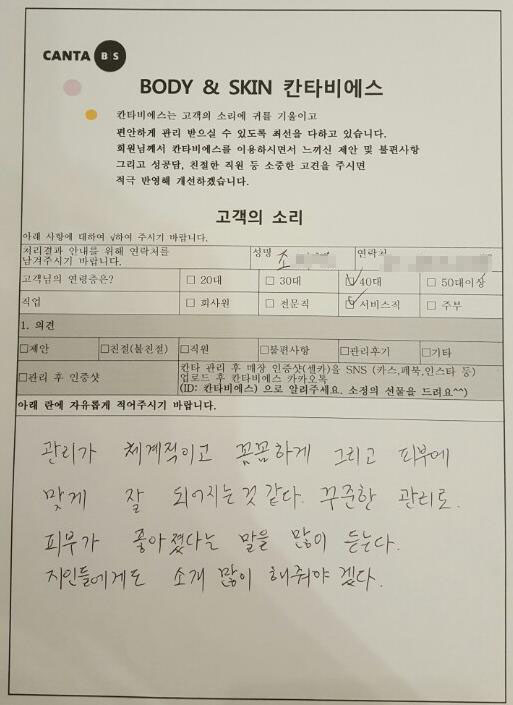 CANTA B|S
BODY & SKIN 칸타비에스
칸타비에스는 고객의 소리에 귀를 기울이고
편안하게 관리 받으실 수 있도록 최선을 다하고 있습니다.
회원님께서 칸타비에스를 이용하시면서 느끼신 제안 및 불편사항
그리고 성공담, 친절한 직원 등 소중한 고견을 주시면
적극 반영해 개선하겠습니다.
고객의 소리
아래 사항에 대하여 √하여 주시기 바랍니다.
처리결과 안내를 위해 연락처를 남겨주시기 바랍니다. 성명 조 연락처
고객님의 연령층은? □ 20대 □ 30대 ☑ 40대 □ 50대이상
직업 □ 회사원 □ 전문직 ☑ 서비스직 □ 주부
1. 의견
□제안 □친절(불친절) □직원 □불편사항 □관리후기 □기타
□관리 후 인증샷 칸타 관리 후 매장 인증샷(셀카)을 SNS (카스,페북,인스타 등)
업로드 후 칸타비에스 카카오톡
(ID: 칸타비에스) 으로 알려주세요. 소정의 선물을 드려요^^)
아래 란에 자유롭게 적어주시기 바랍니다.
관리가 체계적이고 꼼꼼하게 그리고 피부에
맞게 잘 되어지는것 같다. 꾸준한 관리로
피부가 좋아졌다는 말을 많이 듣는다.
지인들에게도 소개 많이 해줘야 겠다.